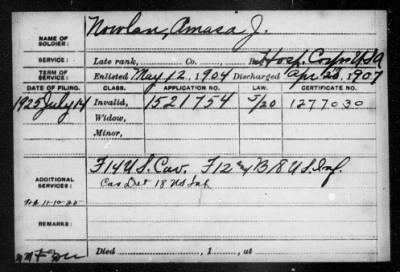 NAME OF SOLDIER: Nowlan, Amasa J.
SERVICE: Late rank, Co. Hosp. Corps USA
TERM OF SERVICE: Enlisted May 12, 1904 Discharged Apr 23, 1907
DATE OF FILING. CLASS. APPLICATION NO. LAW. CERTIFICATE NO.
1925 July 14 Invalid, 1521754 1277030
Widow,
Minor,
ADDITIONAL SERVICES: F 14 U.S. Cav. F 12 & B 8 U.S. Inf.
Cas Det 18 US Inf
REMARKS:
Died , 1 , at